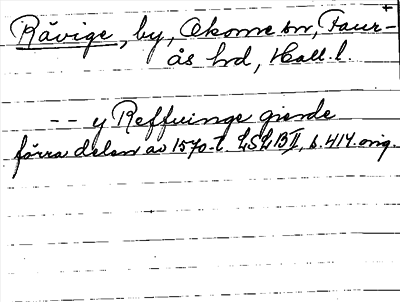 Rävige, by, Okome sn, Faur-
ås hd, Hall. l.
-- y Reffuinge gierde
förra delen av 1570-t. LSLB II, s. 414. orig.